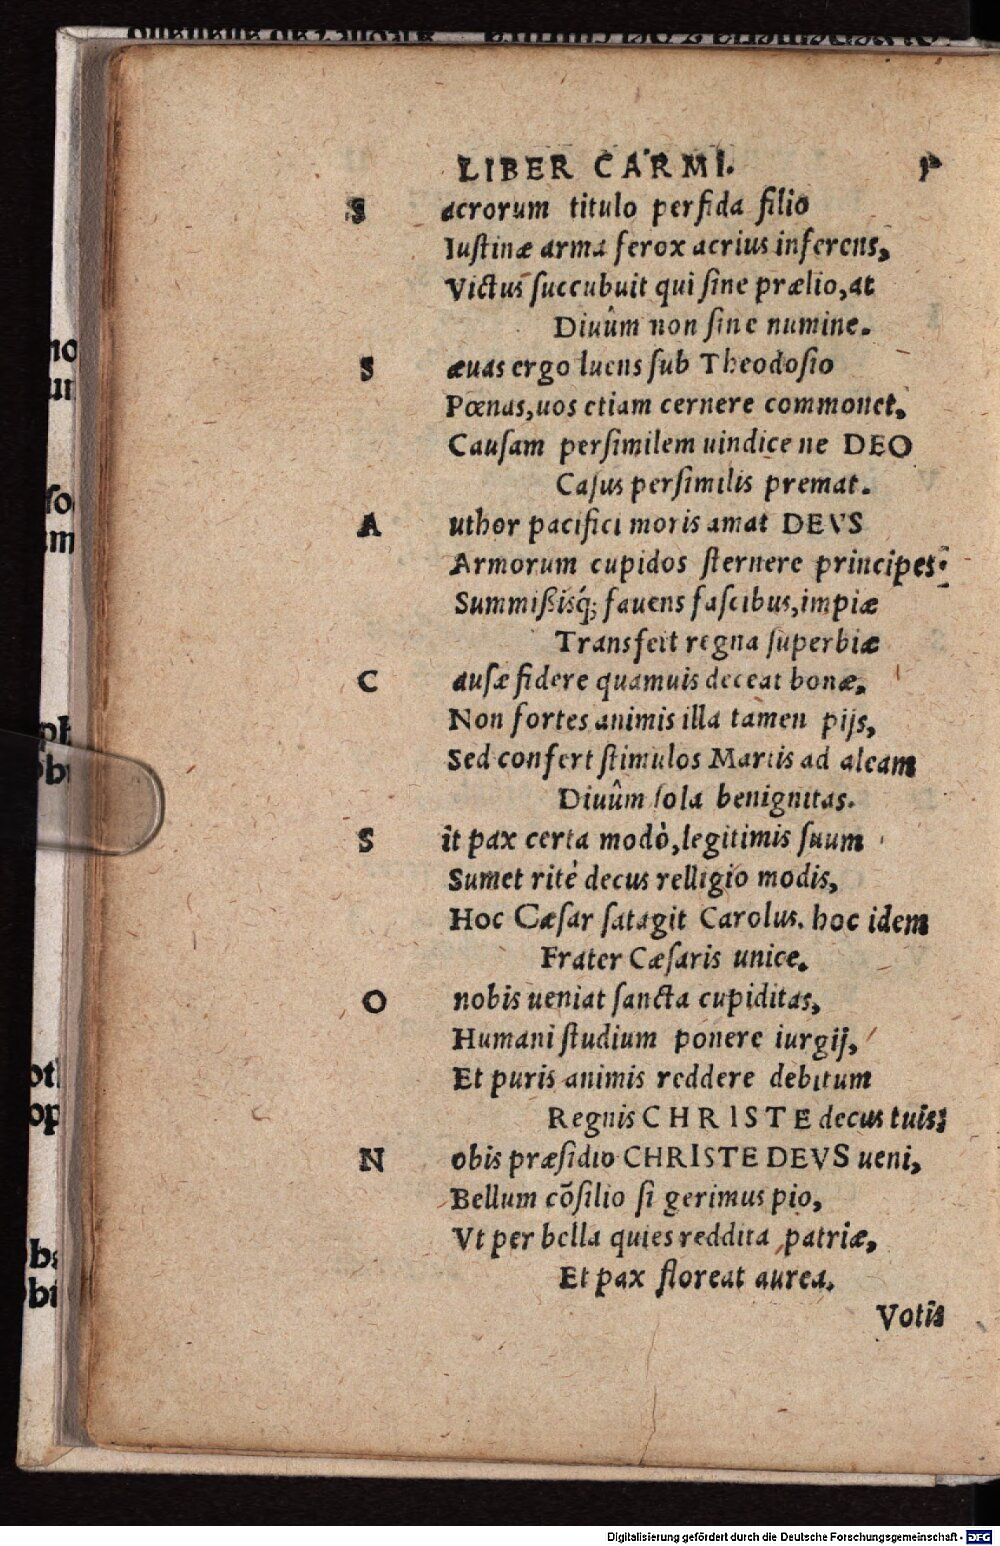 LIBER CARMI.
S acrorum titulo perfida filio
Iuſtinæ arma ferox acrius inferens,
Victus ſuccubuit qui ſine prælio, at
Diuûm non ſine numine.
S æuas ergo luens ſub Theodoſio
Pœnas, uos etiam cernere commonet,
Cauſam perſimilem uindice ne DEO
Caſus perſimilis premat.
A uthor pacifici moris amat DEVS
Armorum cupidos ſternere principes:
Summißisq́; fauens faſcibus, impiæ
Transfert regna ſuperbiæ
C auſæ fidere quamuis deceat bonæ,
Non fortes animis illa tamen pijs,
Sed confert ſtimulos Martis ad aleam
Diuûm ſola benignitas.
S it pax certa modò, legitimis ſuum
Sumet ritè decus relligio modis,
Hoc Cæſar ſatagit Carolus. hoc idem
Frater Cæſaris unice.
O nobis ueniat ſancta cupiditas,
Humani ſtudium ponere iurgij,
Et puris animis reddere debitum
Regnis CHRISTE decus tuis:
N obis præſidio CHRISTE DEVS ueni,
Bellum cõſilio ſi gerimus pio,
Vt per bella quies reddita patriæ,
Et pax floreat aurea.
Votis
Digitalisierung gefördert durch die Deutsche Forschungsgemeinschaft - DFG